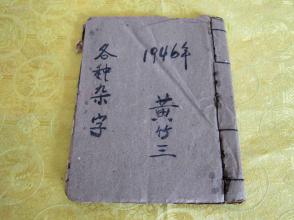 1946年
黄竹三
各种杂字